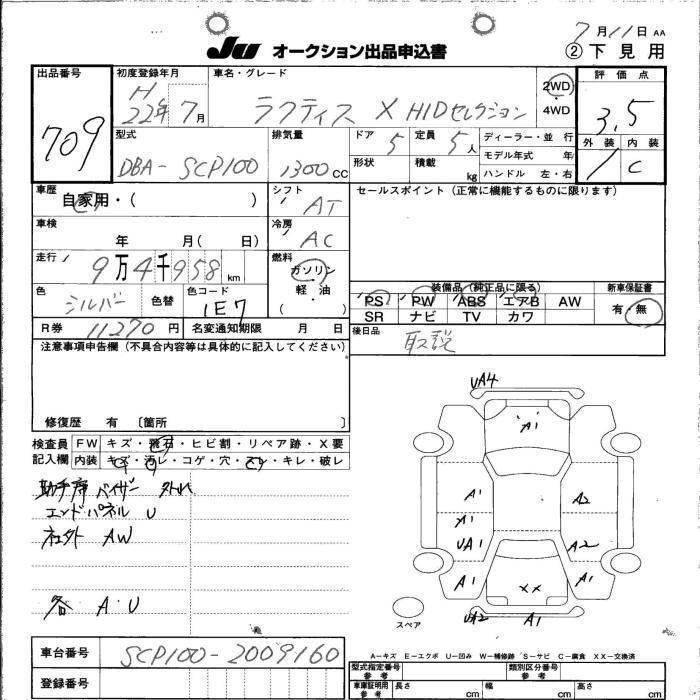 7月11日 AA
JU オークション出品申込書 ②下見用
出品番号 709
初度登録年月 H22年7月
車名・グレード ラクティス X HIDセレクション
2WD・4WD
評価点 3.5
外装 内装 C
型式 DBA-SCP100
排気量 1300cc
ドア 5 定員 5人
形状 積載 kg
ディーラー・並行
モデル年式 年
ハンドル 左・右
車歴 自家用・( )
シフト AT
セールスポイント(正常に機能するものに限ります)
車検 年 月( 日)
冷房 AC
走行 9万4千958km
燃料 ガソリン・軽・油 ( )
色 シルバー 色替 色コード 1E7
装備品(純正品に限る) 新車保証書
PS PW ABS エアB AW
SR ナビ TV カワ
有・無
R券 11270円 名変通知期限 月 日
後日品 取説
注意事項申告欄(不具合内容等は具体的に記入してください)
修復歴 有 〔箇所 〕
検査員記入欄
FW キズ・飛石・ヒビ割・リペア跡・X要
内装 キズ・汚レ・コゲ・穴・スレ・キレ・破レ
助手席 バイザー 外れ
エンドパネル U
社外 AW
各 A・U
UA4
A1
A1
A1
UA1
A1
A2
A2
A1
XX
UA2
A1
スペア
A-キズ E-エクボ U-凹み W-補修跡 S-サビ C-腐食 XX-交換済
車台番号 SCP100-2009160
登録番号
型式指定番号 参考 類別区分番号 参考
車庫証明用 参考 長さ cm 幅 cm 高さ cm